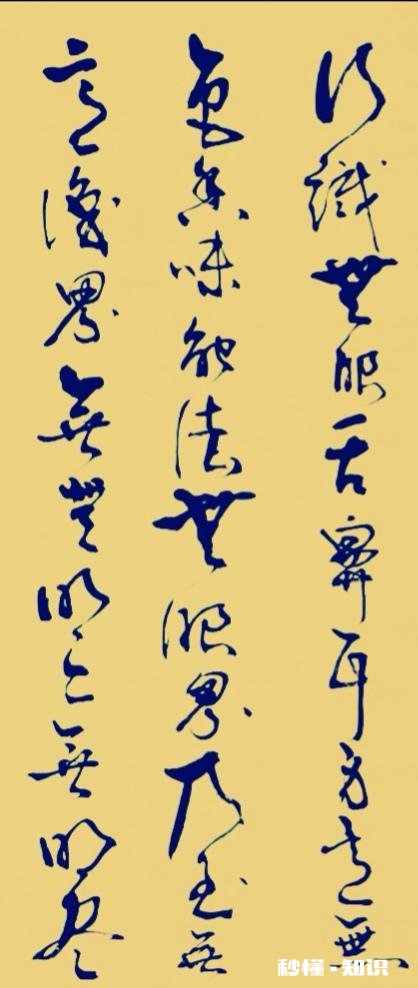 行識無眼舌鼻耳身意無
色香味触法無眼界乃至無
意識界無無明亦無明盡
秒懂·知识